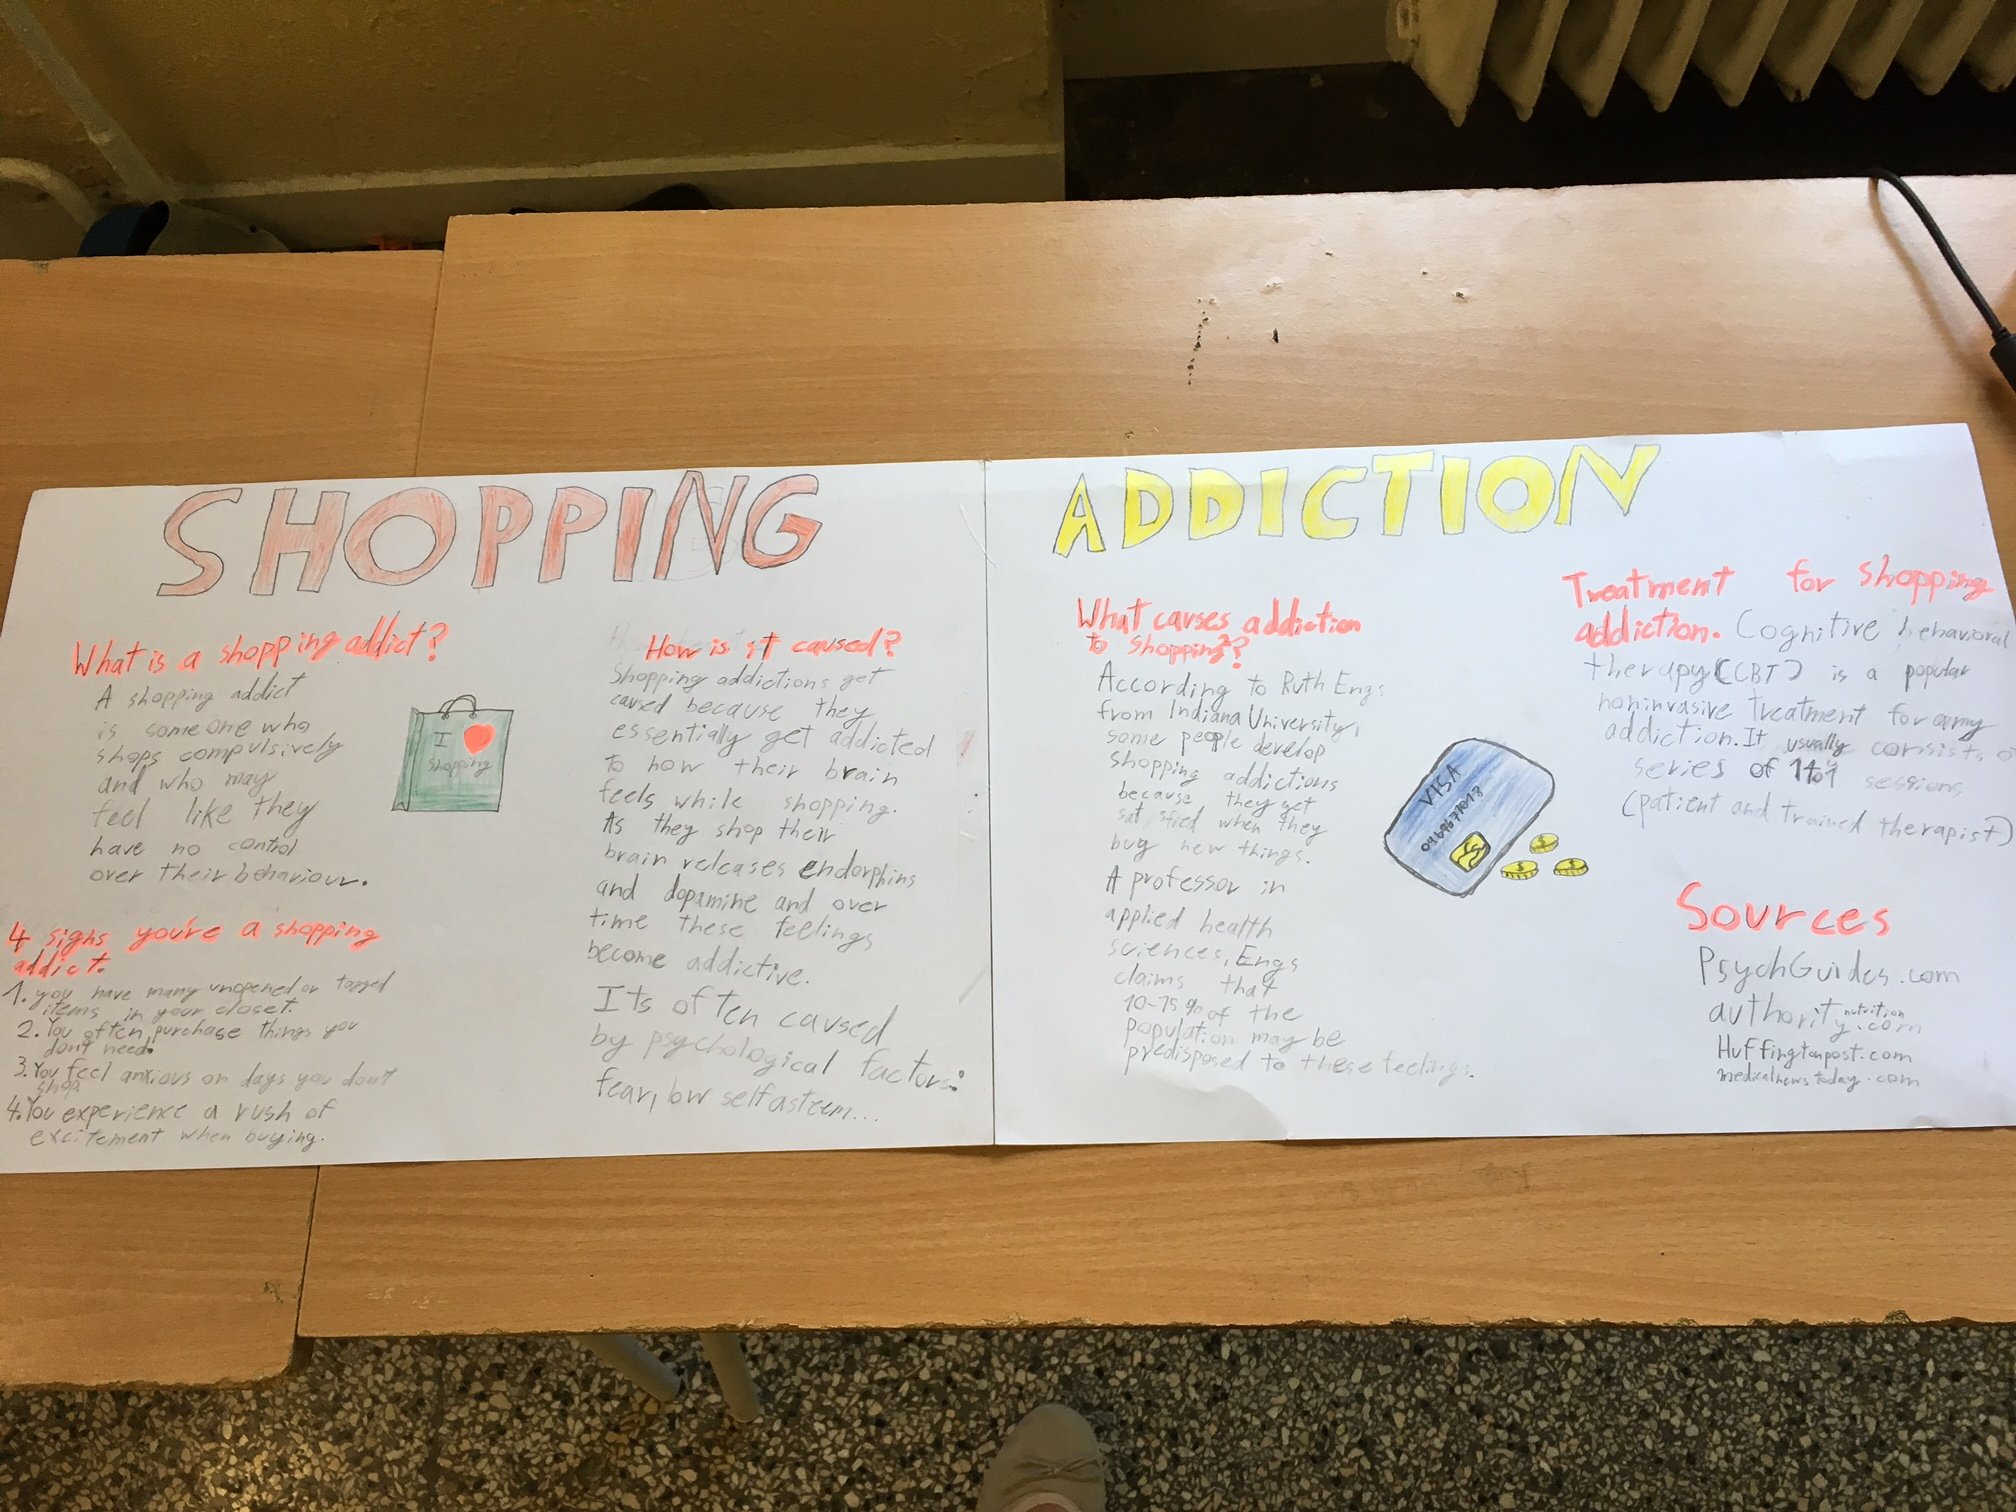 SHOPPING ADDICTION
What is a shopping addict?
A shopping addict
is someone who
shops compulsively
and who may
feel like they
have no control
over their behaviour.
I
shopping
4 signs you're a shopping
addict.
1. you have many unopened or tagged
items in your closet.
2. You often purchase things you
don't need.
3. You feel anxious on days you don't
shop.
4. You experience a rush of
excitement when buying.
How is it caused?
Shopping addictions get
caused because they
essentially get addicted
to how their brain
feels while shopping.
As they shop their
brain releases endorphins
and dopamine and over
time these feelings
become addictive.
Its often caused
by psychological factors:
fear, low selfasteem...
What causes addiction
to shopping?
According to Ruth Engs
from Indiana University,
some people develop
shopping addictions
because they get
satisfied when they
bug new things.
A professor in
applied health
sciences, Engs
claims that
10-15% of the
population may be
predisposed to these feelings.
VISA
Treatment for shopping
addiction. Cognitive behavioral
therapy (CBT) is a popular
noninvasive treatment for any
addiction. It usually consists of
series of 1to1 sessions
(patient and trained therapist)
Sources
PsychGuides.com
authority nutrition.com
Huffingtonpost.com
medicalnewstoday.com